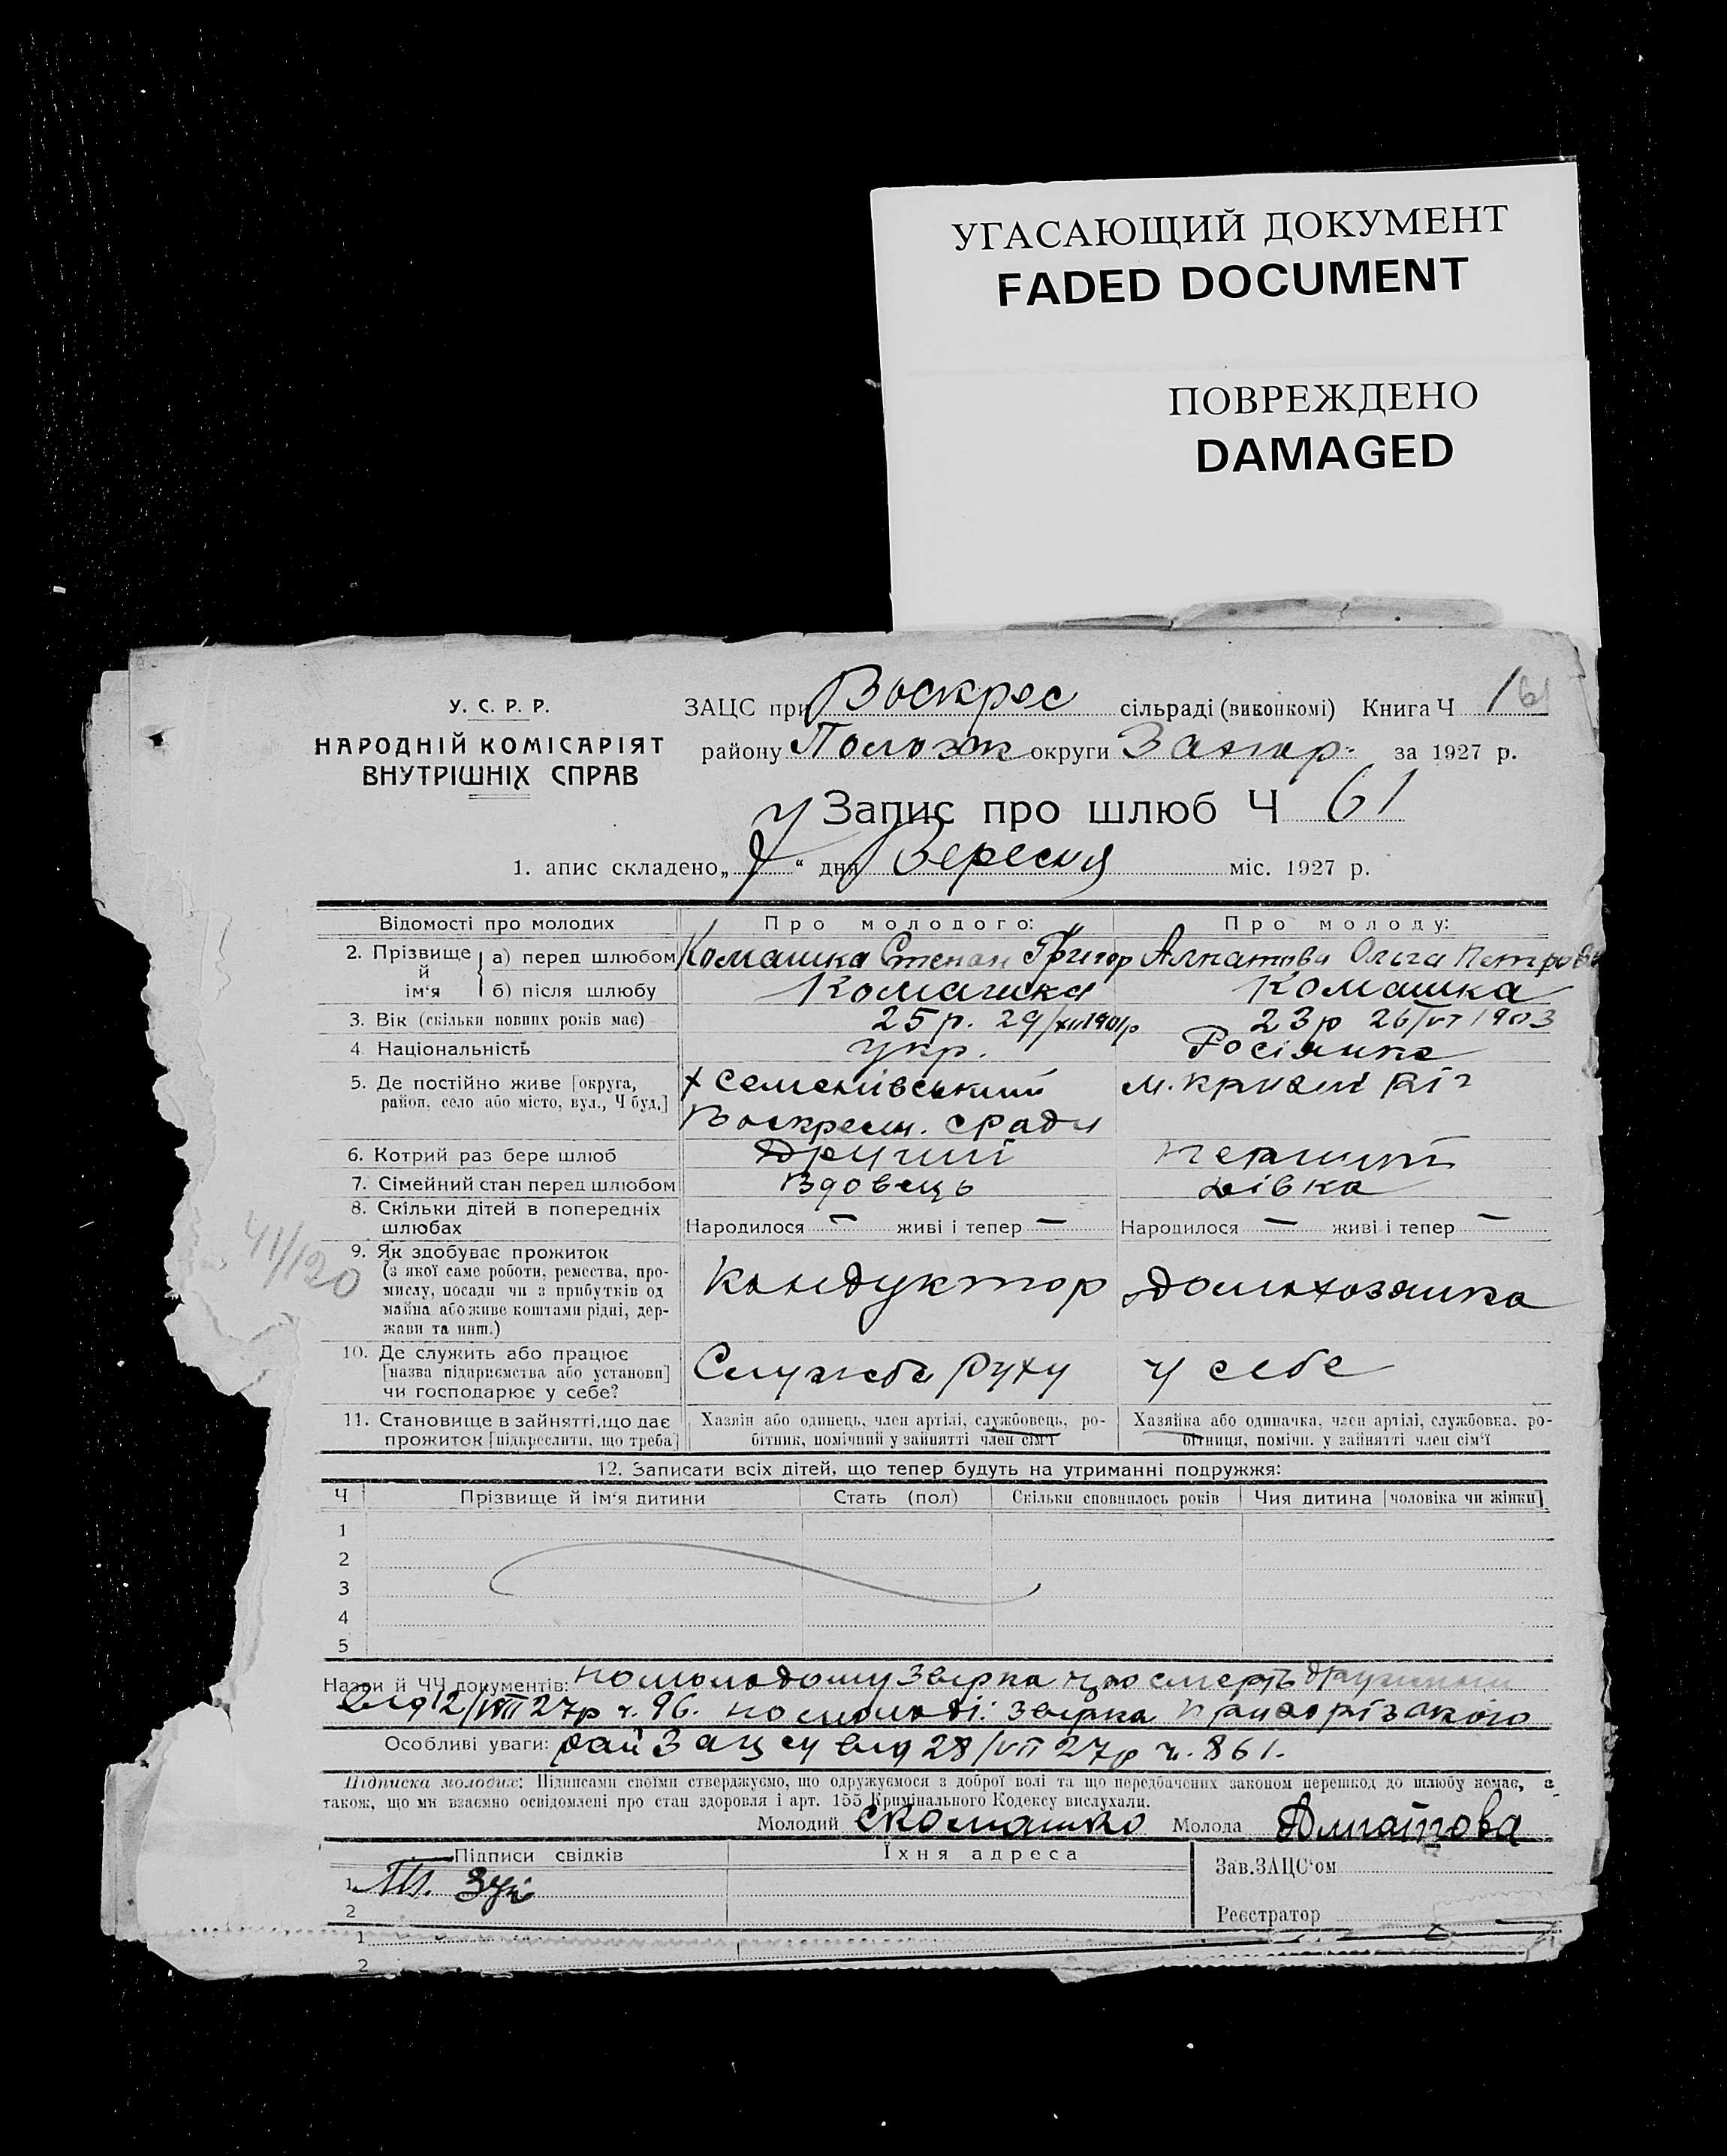 УГАСАЮЩИЙ ДОКУМЕНТ
FADED DOCUMENT
ПОВРЕЖДЕНО
DAMAGED
У. С. Р. Р.
НАРОДНІЙ КОМІСАРІЯТ
ВНУТРІШНІХ СПРАВ
ЗАЦС при Воскрес сільраді (виконкомі) Книга Ч 1 61
району Положк округи Запор. за 1927 р.
Запис про шлюб Ч 61
1. апис складено „ “ дня Вересня міс. 1927 р.
Відомості про молодих Про молодого: Про молоду:
2. Прізвище й ім‘я а) перед шлюбом Комашка Степан Григор Алпатова Ольга Петров
б) після шлюбу Комашка Комашка
3. Вік (скільки повних років має) 25 р. 29/XII 1901р 23 р 26/VI 1903
4. Національність Укр. Росіянка
5. Де постійно живе [округа, х Семенівський м. Кривий Ріг
район, село або місто, вул., Ч буд.] Воскресн. сради
6. Котрий раз бере шлюб Другий Перший
7. Сімейний стан перед шлюбом Вдовець дівка
8. Скільки дітей в попередніх
шлюбах Народилося — живі і тепер — Народилося — живі і тепер —
9. Як здобуває прожиток
(з якої саме роботи, ремества, про-
мислу, посади чи з прибутків од Кондуктор домохозяйка
майна або живе коштами рідні, дер-
жави та инш.)
41/120
10. Де служить або працює
[назва підприємства або установи] Служба Руху у себе
чи господарює у себе?
11. Становище в зайнятті, що дає Хазяїн або одинець, член артілі, службовець, ро- Хазяйка або одиначка, член артілі, службовка, ро-
прожиток [підкреслити, що треба] бітник, помічний у зайнятті член сім‘ї бітниця, помічн. у зайнятті член сім‘ї
12. Записати всіх дітей, що тепер будуть на утриманні подружжя:
Ч Прізвище й ім‘я дитини Стать (пол) Скільки сповнилось років Чия дитина [чоловіка чи жінки]
1
2
3
4
5
Назви й ЧЧ документів: по молодому Звірка про смерть дружини
від 12/VIII 27р ч. 96. по молоді: звірка Криворізького
Особливі уваги: рай Зацсу від 28/VII 27р ч. 861.
Підписка молодих: Підписами своїми стверджуємо, що одружуємося з доброї волі та що передбачених законом перешкод до шлюбу немає, а
також, що ми взаємно освідомлені про стан здоровля і арт. 155 Кримінального Кодексу вислухали.
Молодий СКомашко Молода Алпатова
Підписи свідків Їхня адреса Зав. ЗАЦС‘ом
1
2 Реєстратор
1
2